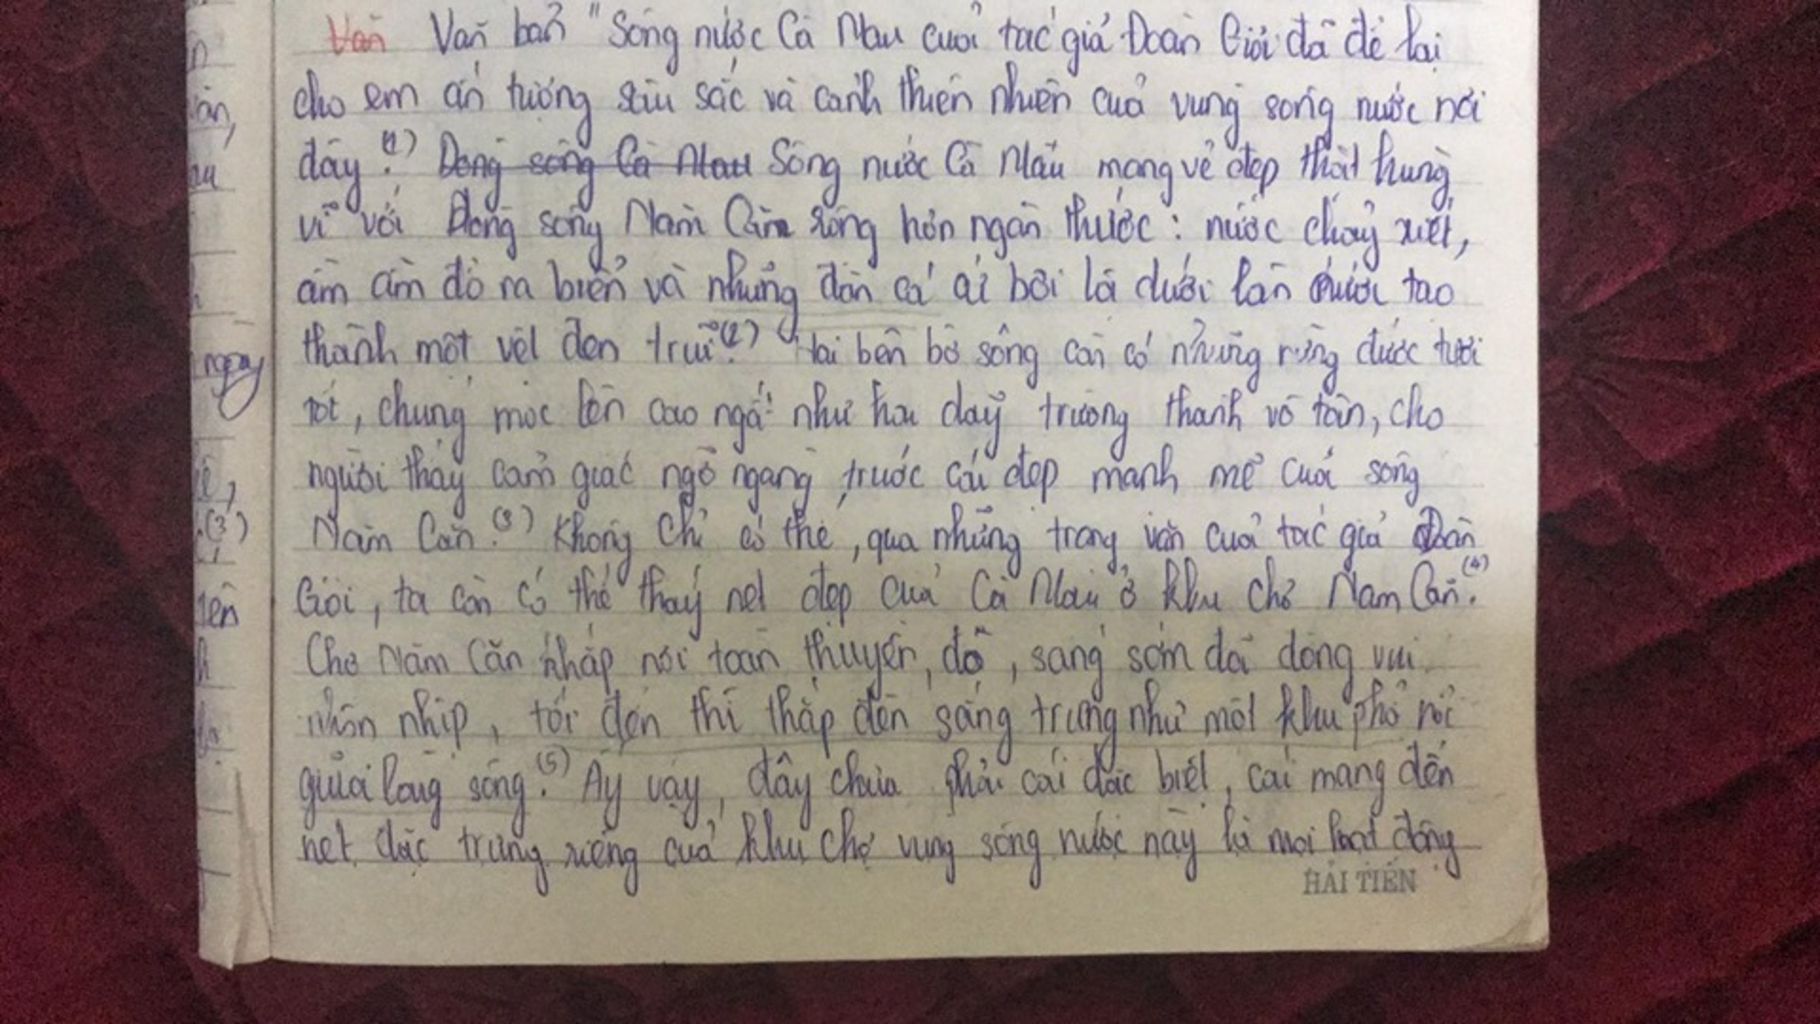 Văn Văn bản "Sông nước Cà Mau của tác giả Đoàn Giỏi đã để lại
cho em ấn tượng sâu sắc và cảnh thiên nhiên của vùng sông nước nơi
đây.(1) Dòng sông Cà Mau Sông nước Cà Mau mang vẻ đẹp thật hùng
vĩ với Dòng sông Năm Căn rộng hơn ngàn thước: nước chảy xiết,
ầm ầm đổ ra biển và những đàn cá bơi lội dưới làn nước tạo
thành một vệt đen trũi.(2) Hai bên bờ sông còn có những rừng đước tươi
tốt, chúng mọc lên cao ngất như hai dãy trường thành vô tận, cho
người thấy cảm giác ngỡ ngàng trước cái đẹp mạnh mẽ của sông
Năm Căn.(3) Không chỉ có thế, qua những trang văn của tác giả Đoàn
Giỏi, ta còn có thể thấy nét đẹp của Cà Mau ở khu chợ Năm Căn.(4)
Chợ Năm Căn khắp nơi toàn thuyền, đò, sáng sớm đã đông vui
nhộn nhịp, tối đến thì thắp đèn sáng trưng như một khu phố nổi
giữa lòng sông.(5) Ấy vậy, đây chưa phải cái đặc biệt, cái mang đến
nét đặc trưng riêng của khu chợ vùng sông nước này là mọi hoạt động
HẢI TIẾN
ngay
(3)